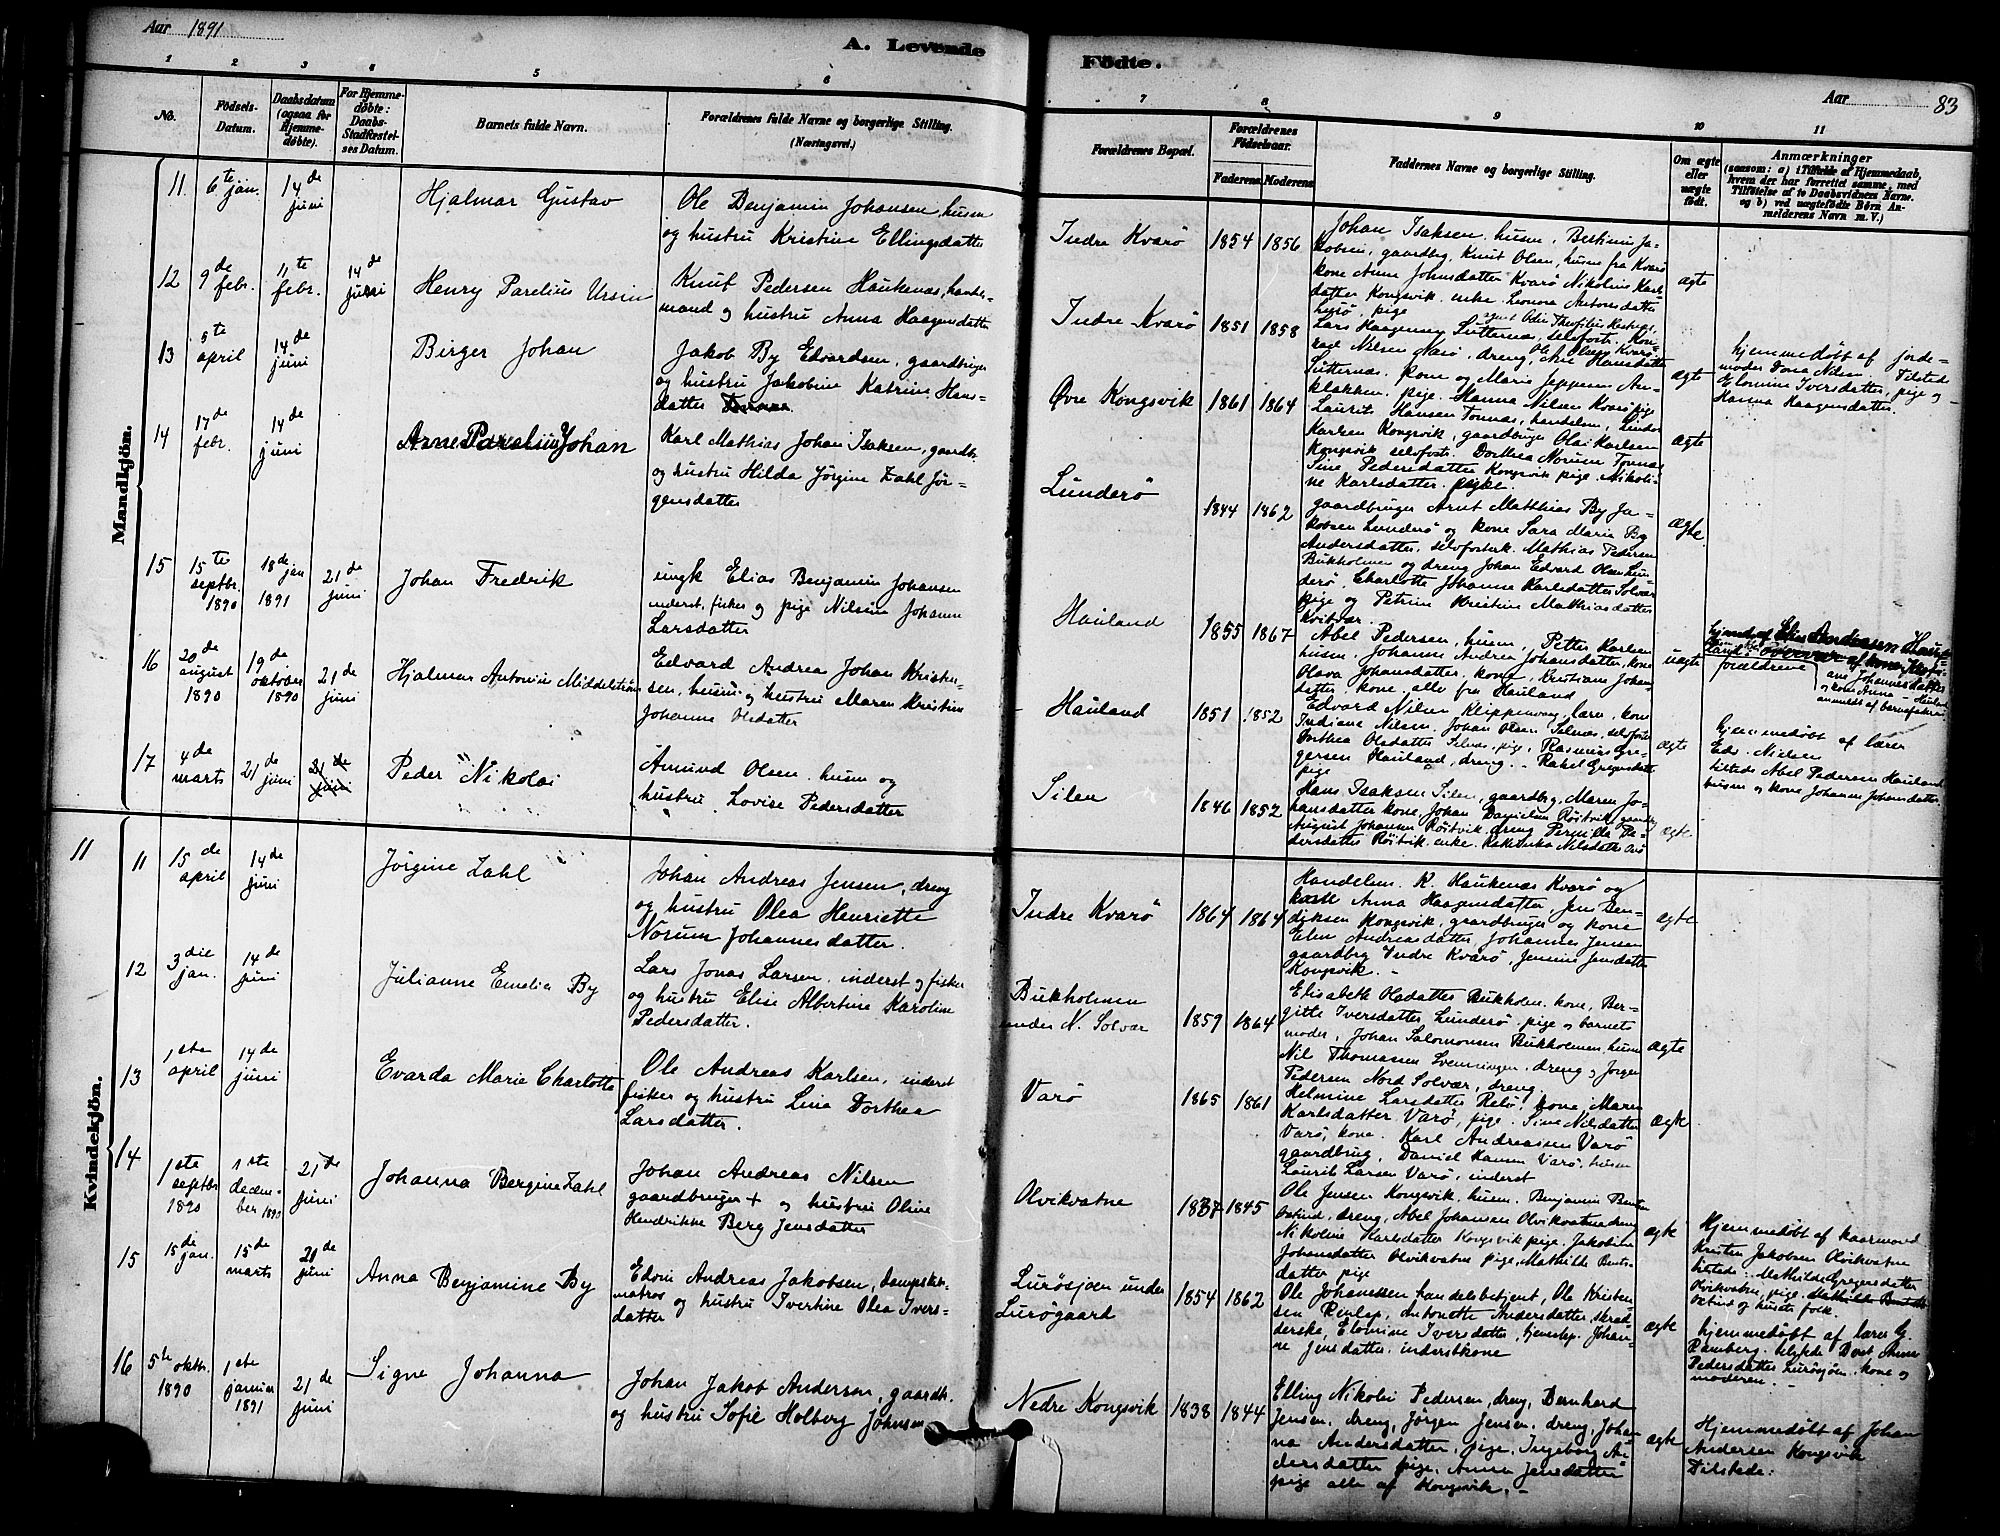 Aar 1891
A. Levende
Födte.
Aar
83
1 2 3 4 5 6
7 8 9 10 11
No.
Födsels-
Datum.
Daabsdatum
(ogsaa for
Hjemme-
døbte).
For Hjemme-
døbte:
Daabs-
Stadfæstel-
ses Datum.
Barnets fulde Navn.
Forældrenes fulde Navne og borgerlige Stilling.
(Næringsvei.)
Forældrenes Bopæl.
Forældrenes
Födselsaar.
Faderens. Moderens.
Faddernes Navne og borgerlige Stilling.
Om ægte
eller
uægte
födt.
Anmærkninger
(saasom: a) i Tilfælde af Hjemmedaab,
hvem der har forrettet samme, med
Tilföielse af to Daabsvidners Navne.
og b) ved uægtefödte Børn An-
melderens Navn m. V.)
Mandkjön.
11. 6te jan. 14de juni
Hjalmar Gustav
Ole Benjamin Johansen, husm
og hustru Kristine Ellingsdatter
Indre Kvarö 1854 1856
Johan Isaksen, husm.
kobsen, gaardbrg. Knut Olsen, husm fra Kvarö
ægte
12 9de febr. 11te febr. 14de juni
Henry Parelius Ursin
Knut Pedersen Haukenæs, handels-
mand og hustru Anna Haagensdatter
Indre Kvarö 1851 1858
ægte
hjemmedøbt af jorde-
moder Dona Nilsen. Tilstede
Elomine Iversdatter, pige og
Hanna Haagensdatter.
13 5te april 14de juni
Birger Johan
Jakob By Edvardsen, gaardbruger
og hustru Jakobine Katrine Hans-
datter
Øvre Kongsvik 1861 1864
Laurits Hansen Tonnæs, handelsm,
Karlsen Kongsvik, gaardbruger Olai Karlsen
Kongsvik selvforst. Dorthea Norum Tonnæs
Sine Pedersdatter Kongsvik pige Nikoli-
ne Karlsdatter. pige
ægte
14 17de febr. 14de juni
Arne Parelius Johan
Karl Mathias Johan Isaksen, gaardb.
og hustru Hilda Jörgine Zahl Jör-
gensdatter
Lunderö 1844 1862
gaardbruger Arnt Matthias By Ja-
kobsen Lunderö og kone Sara Marie By
Andersdatter, selvforsterk. Mathias Pedersen
Bukholmen og dreng Johan Edvard Olsen Lun-
derö, Charlotte Johanna Karlsdatter Solvær
pige og Petrine Kristine Mathiasdatter
Kvitvær.
ægte
15 15te septbr. 1890 18de jan 1891 21de juni
Johan Fredrik
ungk Elias Benjamin Johansen
inderst, fisker og pige Nilsine Johanna
Larsdatter
Hauland 1855 1867
Abel Pedersen, husm, Petter Karlsen
husm. Johanna Andrea Johansdatter, kone
Olava Johansdatter, kone, Kristiane Johan-
datter, kone, alle fra Hauland
uægte
16 20de august 1890 19de oktober 1890 21de juni
Hjalmar Antonius Middelström
Edvard Andrea Johan Kristen-
sen, husm. og hustru Maren Kristine
Johanna Olsdatter
Hauland 1851 1852
Edvard Nilsen Klippenvaag, lærer, kone
Indiane Nilsen, Johan Olsen Selnæs, selvforst.
Dorthea Olsdatter Selnæs, pige, Rasmus Gre-
gersen Hauland, dreng. Rakel Gregersdatter
pige
ægte
hjemmedøbt af lærer
Eds. Nielsen
tilstede Abel Pedersen Hauland
husm og kone Johanna Johansdatter.
17 4de marts 21de juni 21de juni
Peder Nikolai
Amund Olsen, husm og
hustru Lovise Pedersdatter
Silen 1846 1852
Hans Isaksen Silen, gaardbrg. Maren Jo-
hansdatter kone, Johan Danielsen Röitvik,
August Johansen Röitvik, dreng Pernille Pe-
dersdatter Röitvik, enke.
ægte
Kvindekjön.
11
11 15de april 14de juni
Jörgine Zahl
Johan Andreas Jensen, dreng
og hustru Olea Henriette
Norum Johannesdatter.
Indre Kvarö 1864 1864
Handelsm. K. Haukenæs Kvarö og
Anna Haagensdatter, Jens Ben-
diksen Kongsvik, gaardbruger og kone
Elen Andreasdatter, Johannes Jensen
gaardbrg Indre Kvarö, Jensine Jensdatter
Kongsvik. -
ægte
12 3die jan. 14de juni
Julianne Emelia By
Lars Jonas Larsen, inderst og fisker
og hustru Elise Albertine Karoline
Pedersdatter.
Bukholmen
under N. Solvær 1859 1864
Elisabeth Olsdatter Bukholm. kone, Ber-
gitte Iversdatter Lunderö, pige og barnets
moder, Johan Salomonsen Bukholmen, husm
Nils Thomassen Svenningen, dreng og Jörgen
Pedersen Nord Solvær, dreng.
ægte
13 1ste april 14de juni
Evarda Marie Charlotte
Ole Andreas Karlsen, inderst
fisker og hustru Lina Dorthea
Larsdatter.
Varö 1865 1861
Helmine Larsdatter Relö, kone, Maren
Karlsdatter Varö, pige. Sine Nilsdatter
Varö, kone. Karl Andreassen Varö
gaardbrug, Daniel Hansen Varö, husm
Laurits Larsen Varö, inderst
ægte
14 1ste septbr 1890 1ste decem-
ber 1890 21de juni
Johanna Bergine Zahl
Johan Andreas Nilsen
gaardbruger + og hustru Oline
Hendrikke Berg Jensdatter
Olvikvatne 1837 1845
Ole Jensen Kongsvik, husm. Benjamin
dreng, Abel Johansen Olvikvatne dreng
Nikoline Karlsdatter Kongsvik pige, Jakobine
Johansdatter Olvikvatne pige, Mathilde
datter pige
ægte
Hjemmedøbt af kaarmand
Kristen Jakobsen Olvikvatne
tilstede: Mathilde Gregersdatter
Olvikvatn, pige.
og husets folk.
15 15de jan. 15de marts 21de juni
Anna Benjamine By
Edvin Andreas Jakobsen, dampskibs-
matros og hustru Ivertine Olea Ivers-
datter
Luröosjoen under
Lurögaard 1854 1862
Ole Johanessen handelsbetjent, Ole Kristen-
sen Renlep, Antonette Andersdatter, skræd-
derske, Elomine Iversdatter, tjenestep. Johan-
ne Jensdatter, inderstkone
ægte
hjemmedøbt af lærer G.
Ramberg. tilstede Dort. Anna
Pedersdatter Lurösjöen, kone og
moderen. -
16 5te oktbr. 1890 1ste januar 1891 21de juni
Signe Johanna
Johan Jakob Andersen, gaardb.
og hustru Sofie Holberg Johnsen
Nedre Kongsvik 1838 1844
Elling Nikolai Pedersen, dreng, Bernhard
Jensen, dreng, Jørgen Jensen, dreng, Johan-
na Andersdatter, pige, Ingeborg An-
dersdatter pige, Anna Jensdatter
pige alle af Kongsvik. -
ægte
Hjemmedøbt af Johan
Andersen Kongsvik
Tilstede: